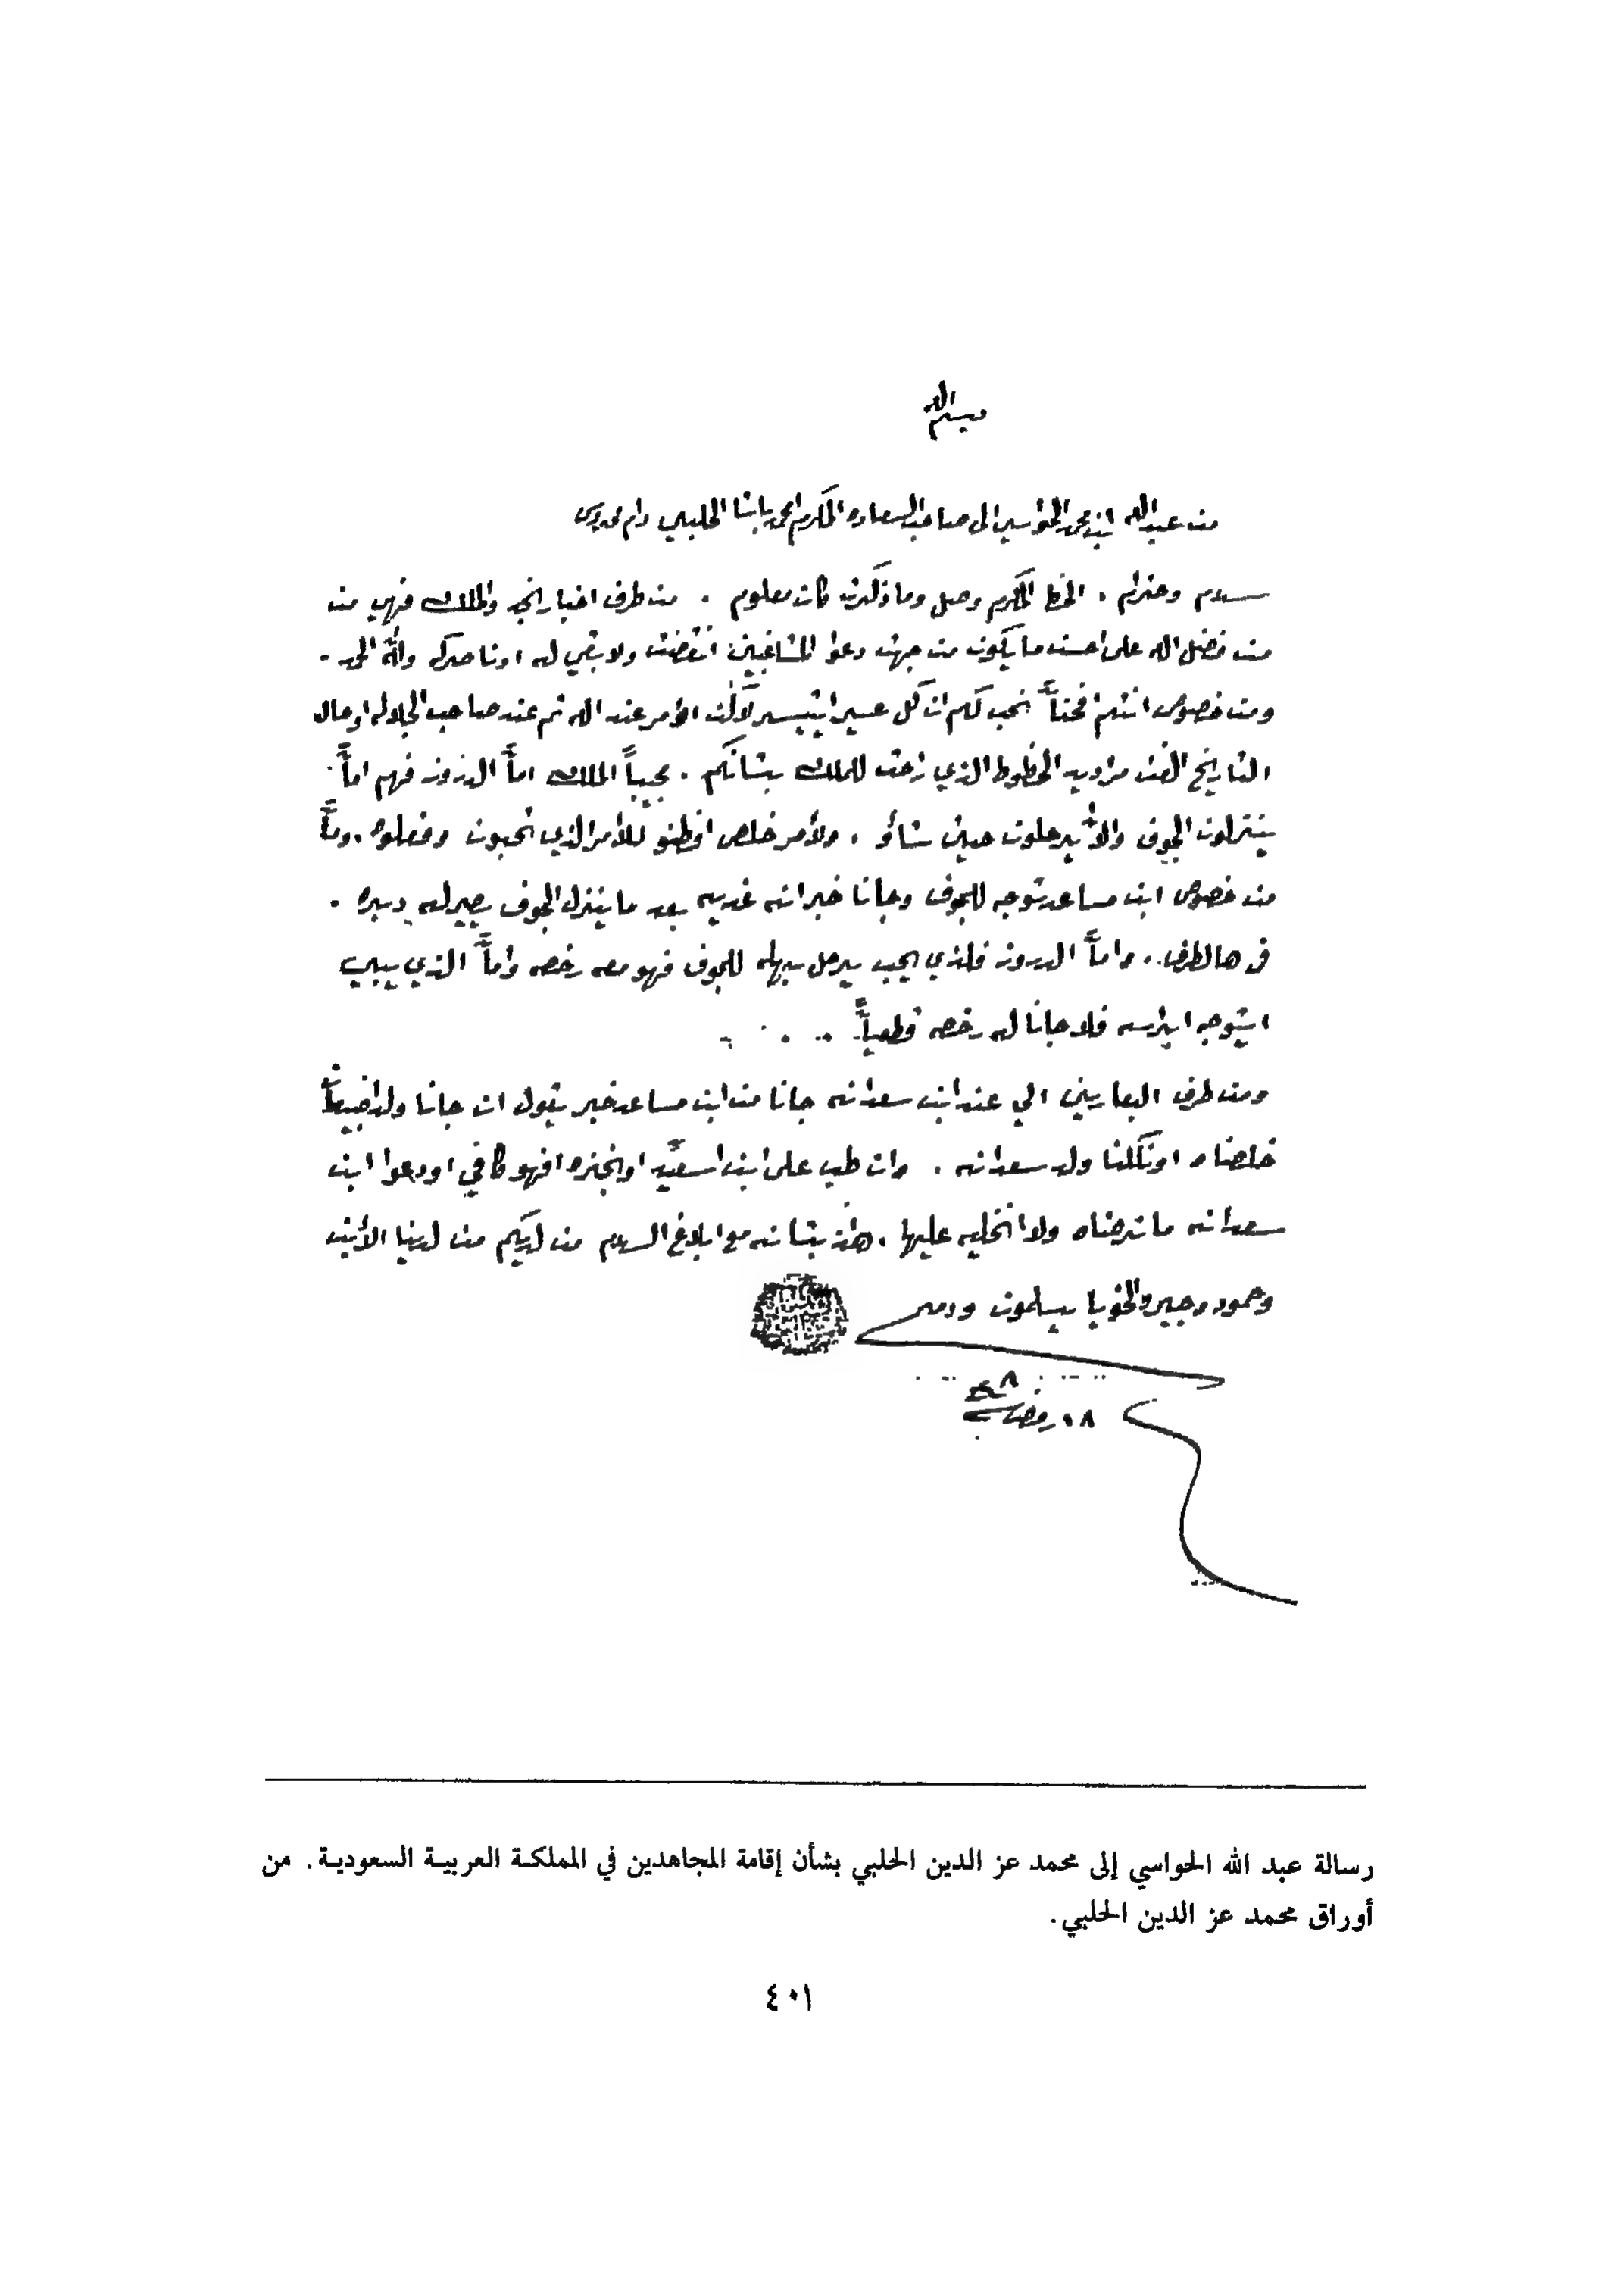 بسم الله
من عبدالله ابن محمد الحواسي الى صاحب السعاده المكرم محمد باشا الحلبي دام محروس
سلام وحترام . الخط المكرم وصل وما ذكرت كان معلوم . من طرف اخبار نجد والملك فهي من
من فضل الله على احسن ما يكون من جهت دعوا المشاغبين انقضت ولا بقي له اونا حركه ولله الحمد .
ومن خصوص انتم افحنا نحب لكم ان كل عسير ايتيسر لاكن الامر عند الله ثم عند صاحب الجلاله اوحال
التاريخ مراديد الخطوط الذي راحت للملك بشانكم . مجيباً الملك اماً الدروز فهم اماً
ينزلون الجوف والا يرحلون حيث شاؤ . ولأمر خلص افطنو للأمر الذي تحبون وفعلوه . وماً
من خصوص ابن مساعد توجه للجوف وجانا خبر انه غديه بعد ما ينزل الجوف يصير له دبره .
في هالطرف . واماً الدروز فلذي يحب يرحل بهله للجوف فهو معه رخصه واماً الذي يبي
ايتوجه ابراسه فلا جانا له رخصه قطعياً
ومن طرف البعارين الي عند ابن سعدانه جانا من ابن مساعد خبر يقول ان جانا ولد
خلصناه اونكلنا ولد سعدانه . وان طب على ابن اسعيّد فهو كافي اودعوا ابن
سعدانه ما ترضاه ولا انخليه عليها . هذ بشانه مع ابلاغ السلام من لديكم من لدينا الأبن
وحمود وجبير والخويا يسلمون ودمتم
٠٨ رمضان ٤٨
رسالة عبد الله الحواسي إلى محمد عز الدين الحلبي بشأن إقامة المجاهدين في المملكة العربية السعودية . من
أوراق محمد عز الدين الحلبي .
٤٠١